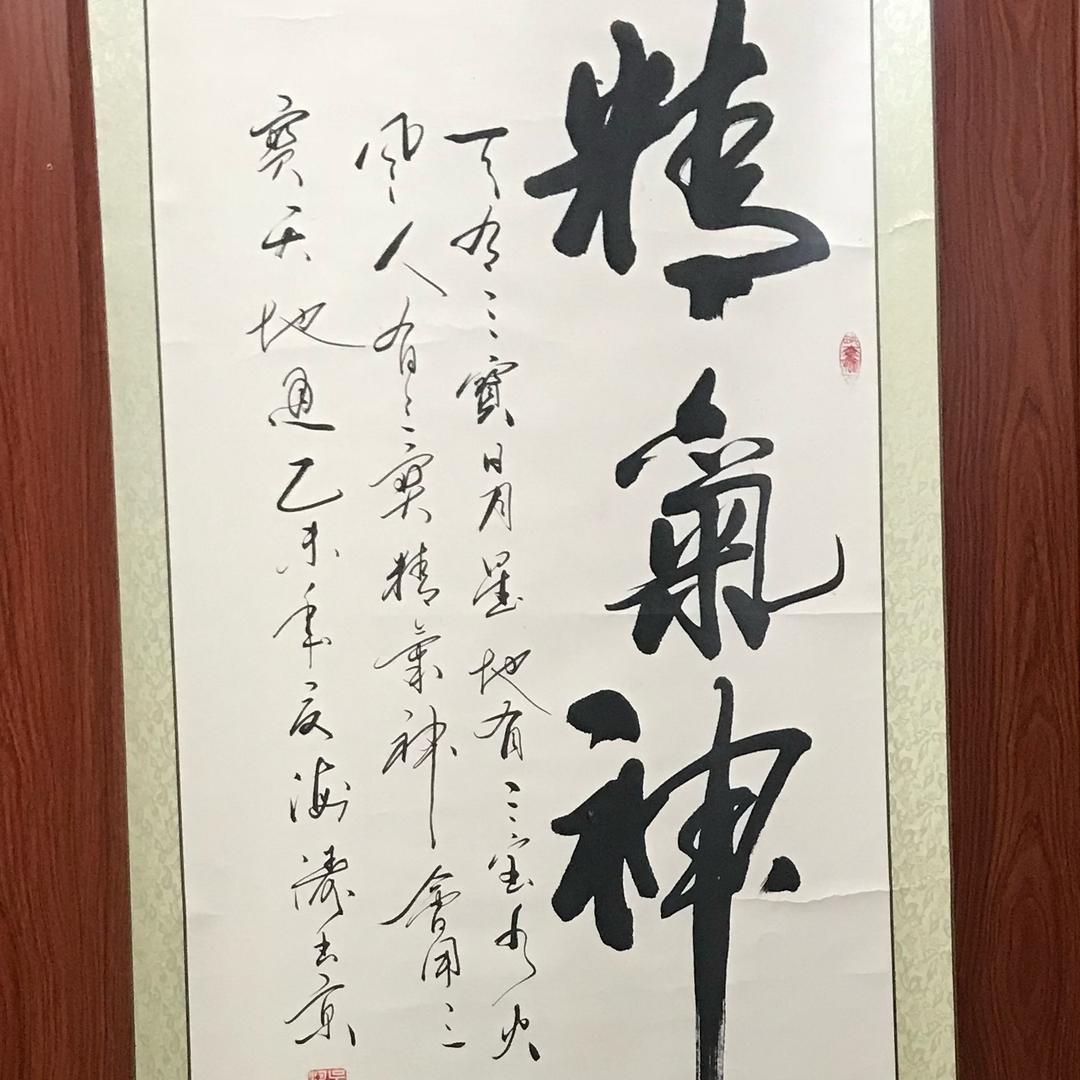 精氣神
天有三寶日月星地有三宝水火
風人有三寶精氣神會用三
寶天地通乙未年夏海濤書京